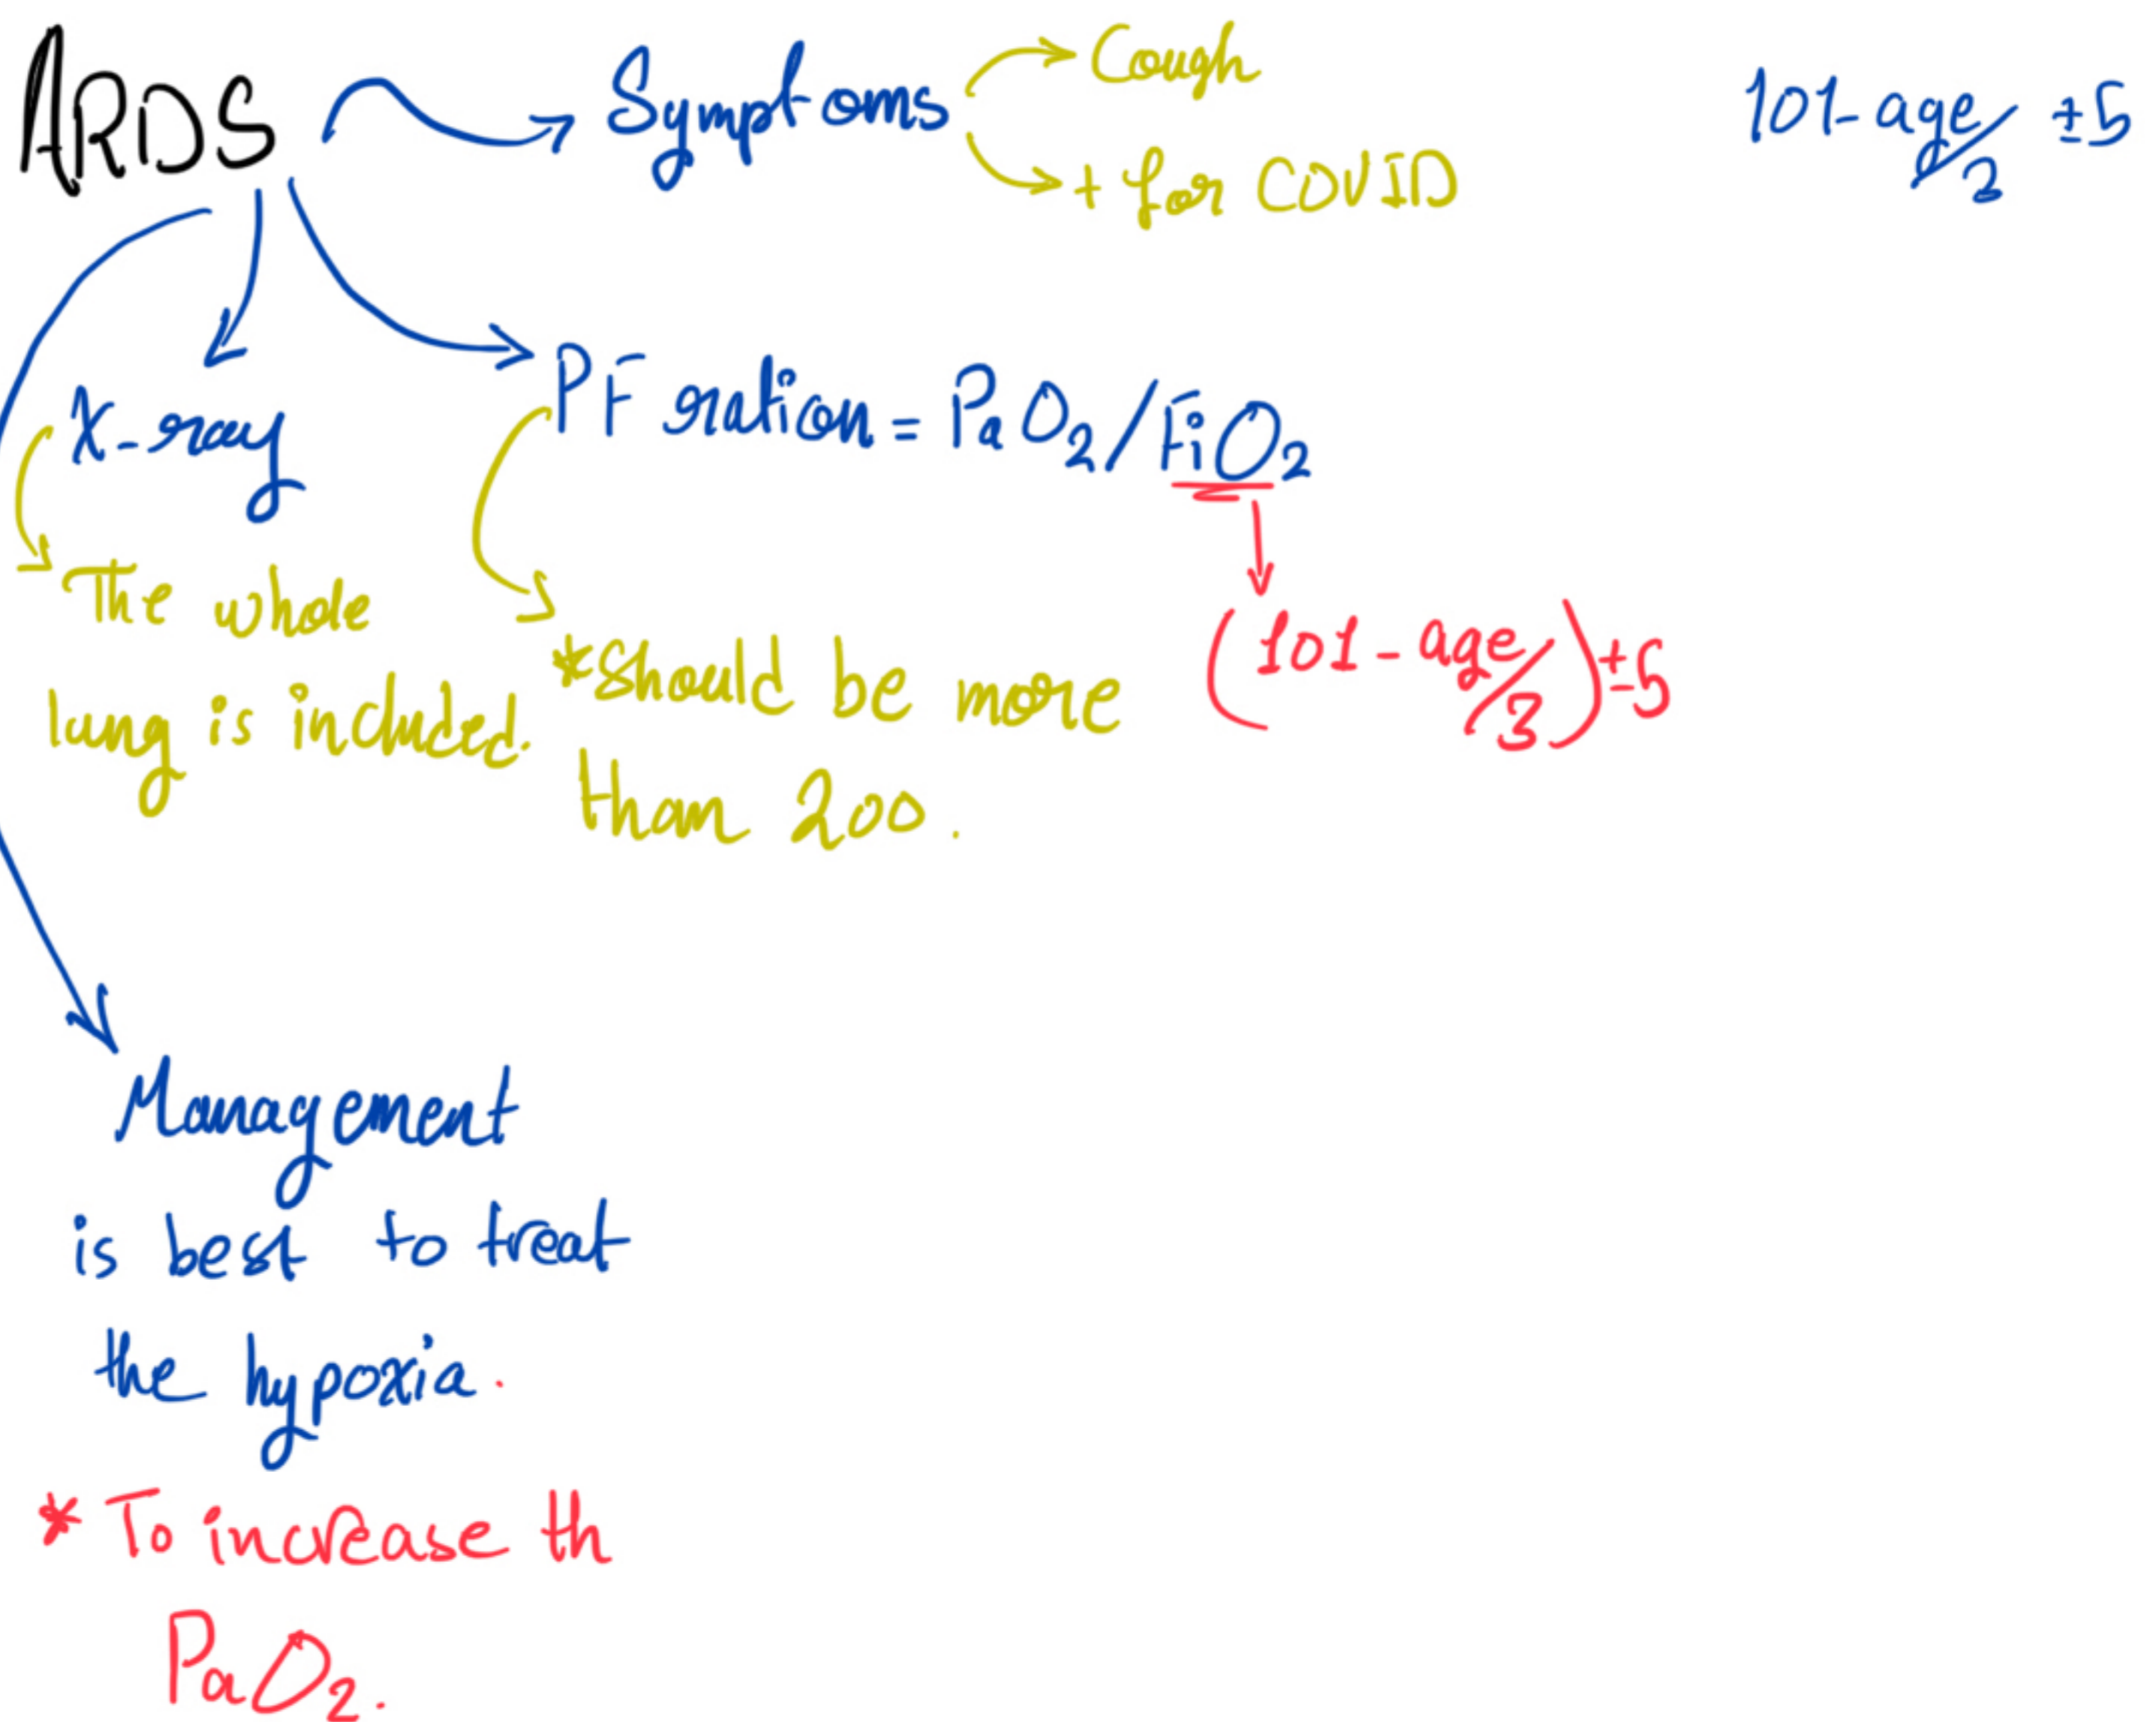 ARDS
Symptoms
Cough
+ for COVID
101- age/2 ±5
X-ray
The whole
lung is included.
PF ration = PaO2/FiO2
*should be more
than 200.
(101 - age/3) ±5
Management
is best to treat
the hypoxia.
* To increase th
PaO2.